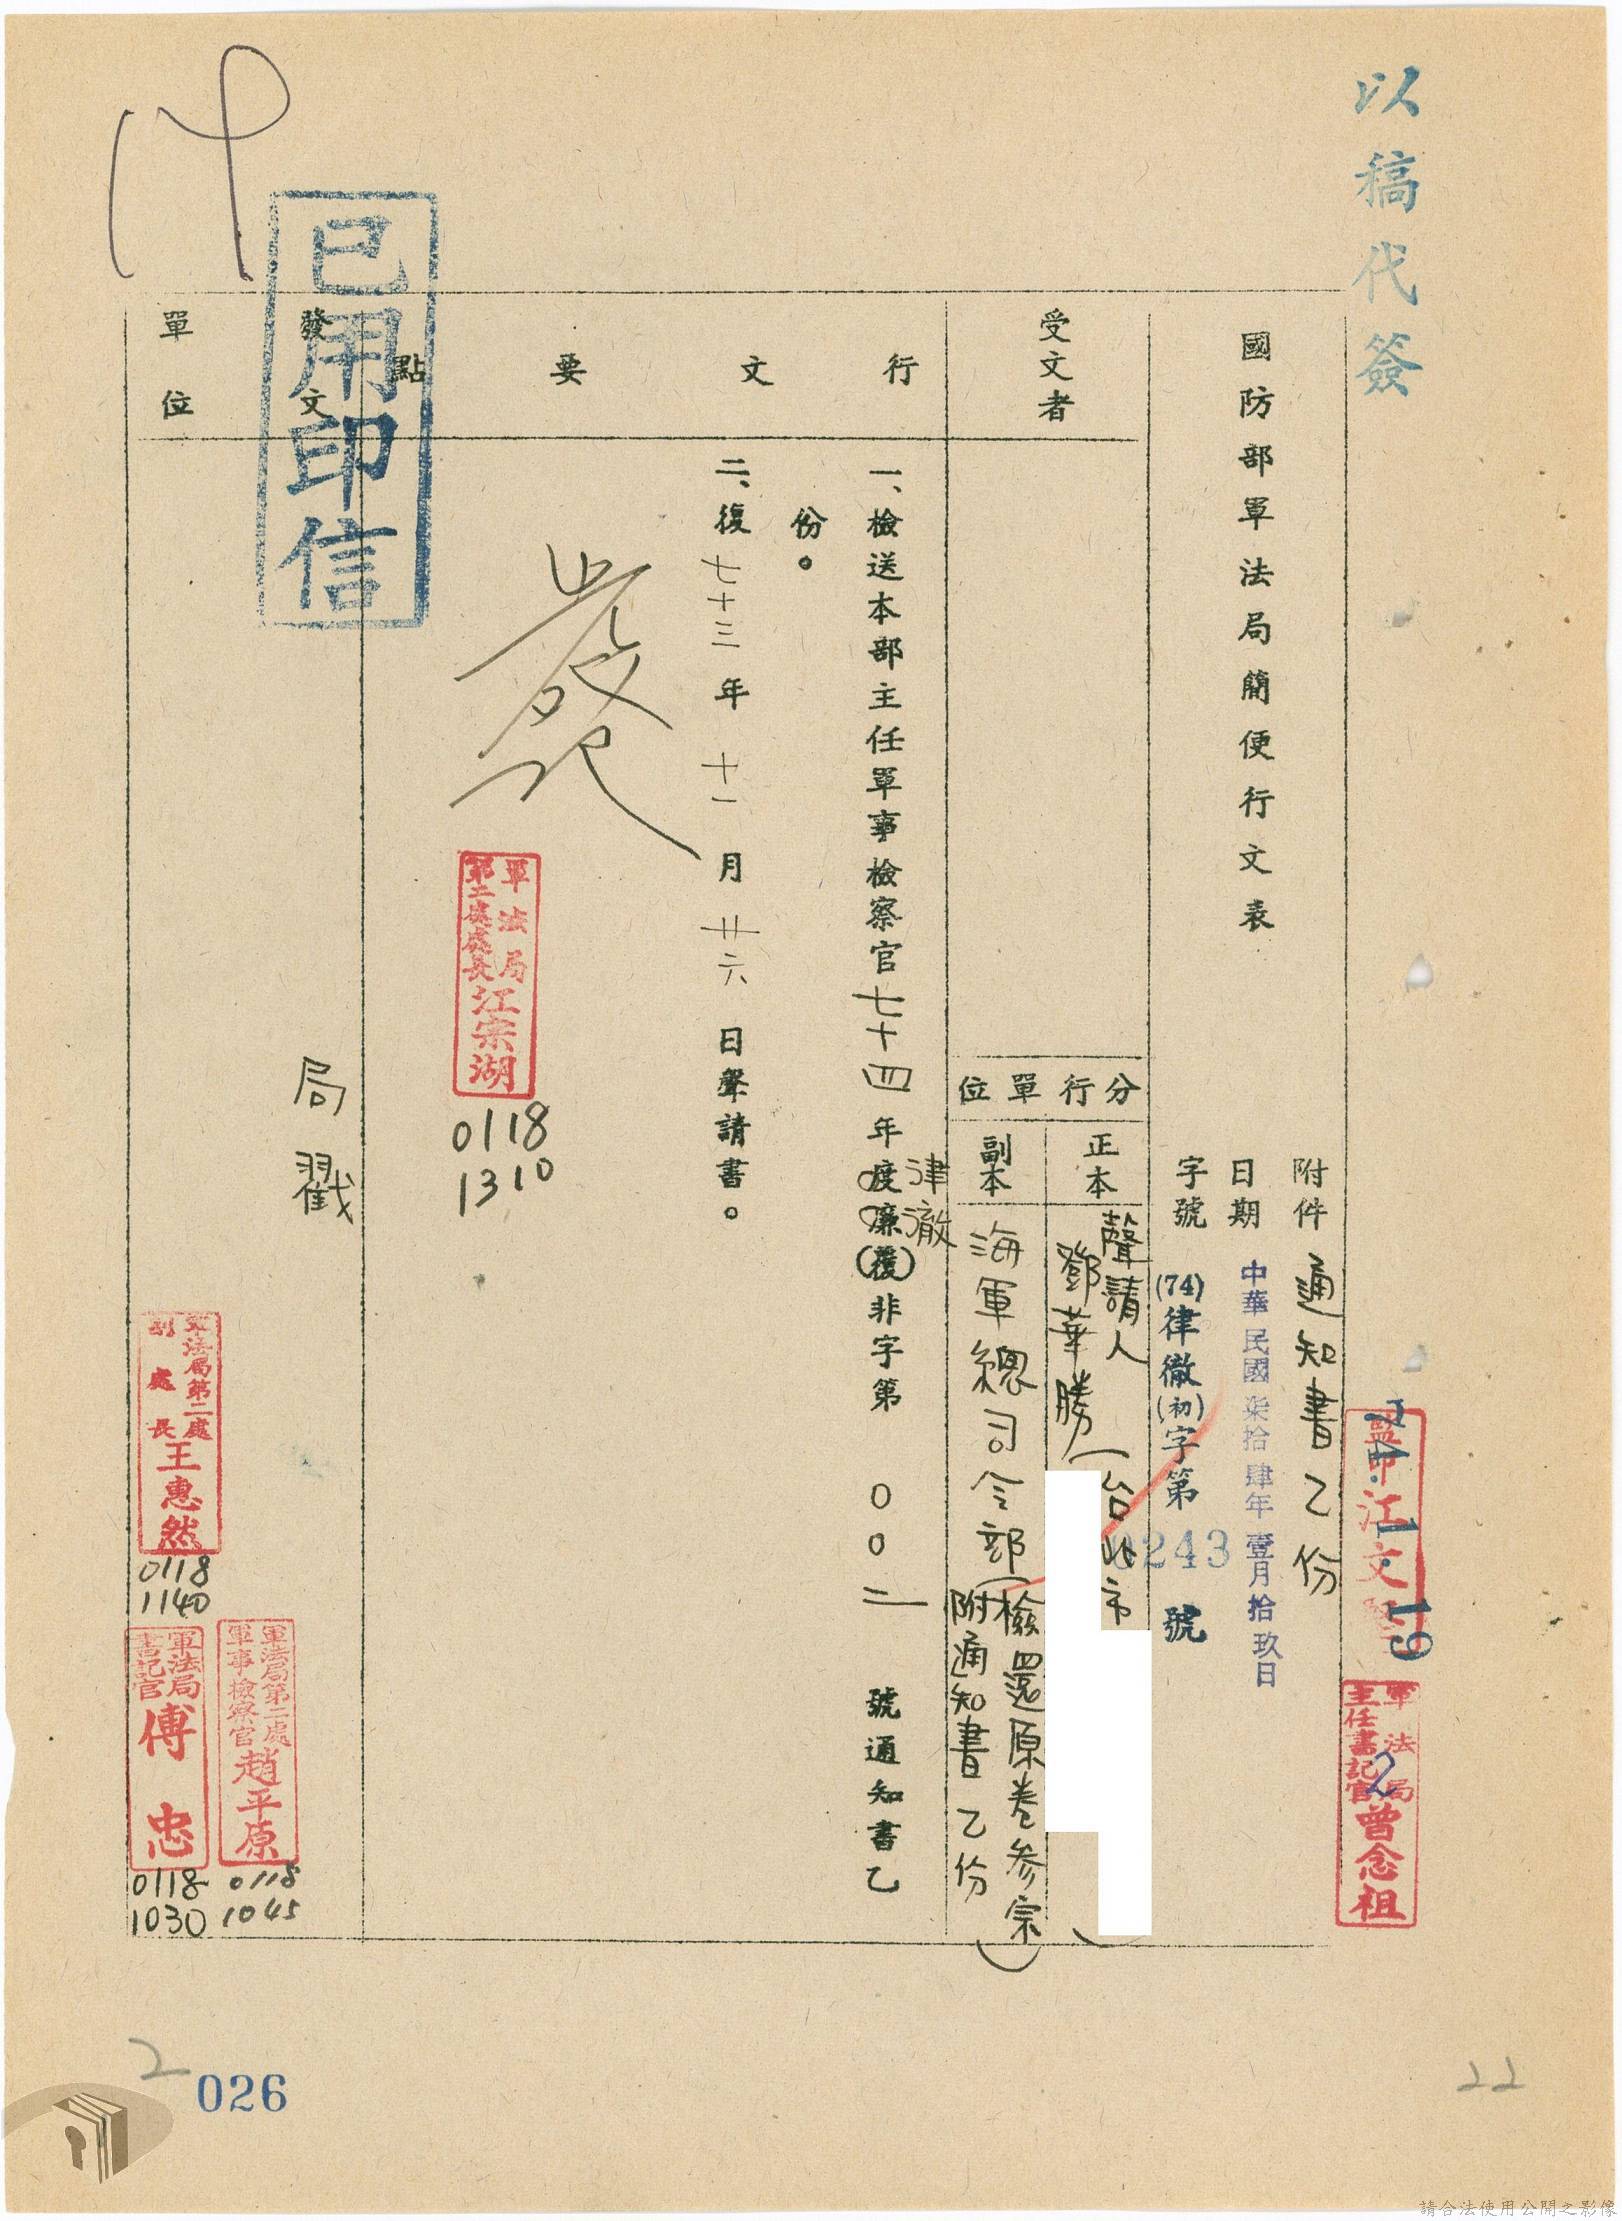 以稿代簽
國防部軍法局簡便行文表
附件 通知書乙份
日期 中華民國柒拾肆年壹月拾玖日
字號 (74)律徹(初)字第0243號
受文者
分行單位
正本
聲請人
鄧華勝(台北市
)
副本
海軍總司令部(檢還原卷參宗
附通知書乙份)
行文要點
一、檢送本部主任軍事檢察官七十四年度廉(覆)非字第00二號通知書乙
律徹
份。
二、復七十三年十一月廿六日聲請書。
發
軍法局
第二處處長江宗湖
0118
1310
發文
單位
局戳
已用印信
軍法局第二處
副處長王惠然
0118
1140
軍法局第二處
軍事檢察官趙平原
0118
1045
軍法局
書記官傅忠
0118
1030
監印江文
74.1.19
軍法局
主任書記官曾念祖
2
2
026
22
請合法使用公開之影像